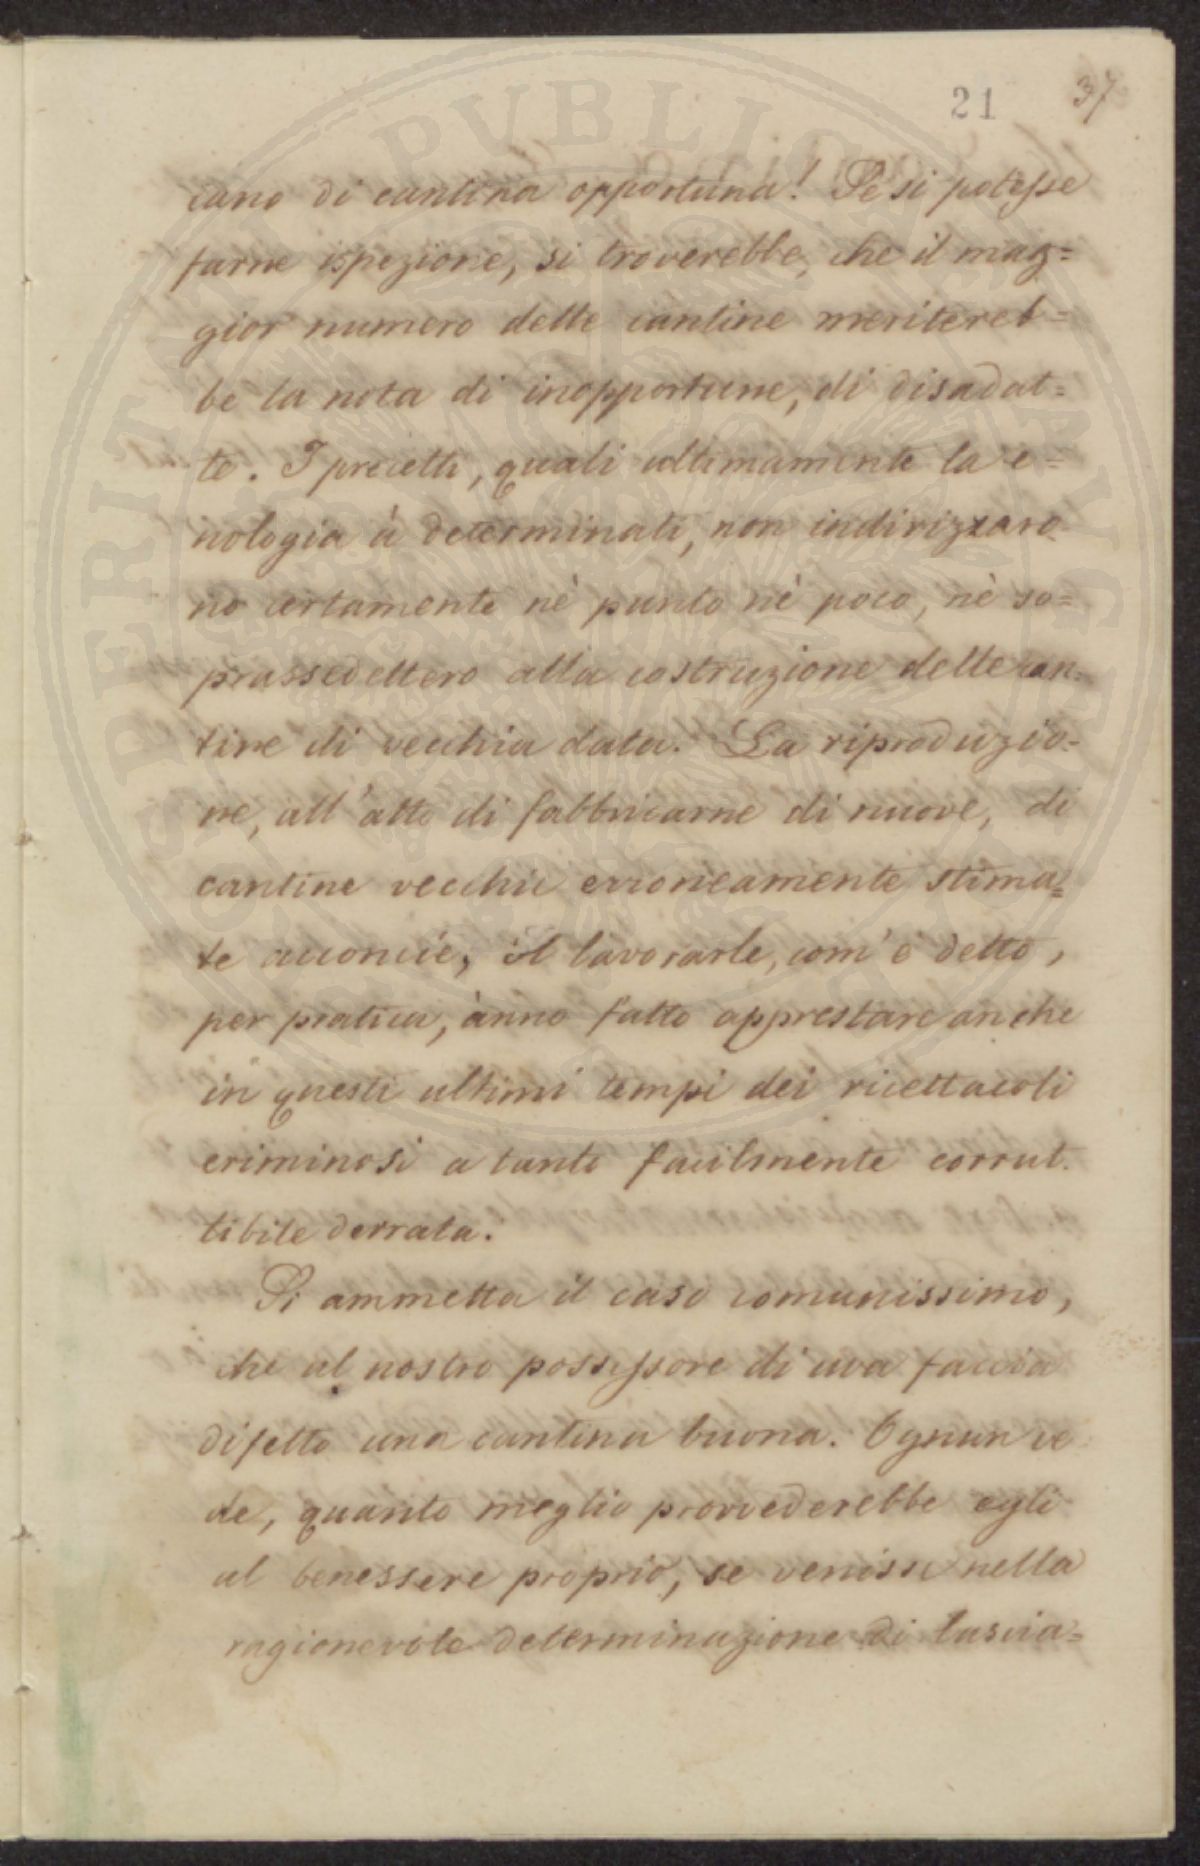 21 37
cano di cantina opportuna! Se si potesse
farne ispezione, si troverebbe, che il mag=
gior numero delle cantine meritereb=
be la nota di inopportune, di disadat=
te. I precetti, quali ultimamente la e=
nologia à determinati, non indirizzaro
no certamente nè punto nè poco, nè so=
prassedettero alla costruzione delle can=
tine di vecchia data. La riproduzio=
ne, all'atto di fabbricarne di nuove, di
cantine vecchie erroneamente stima=
te acconcie, il lavorarle, com'è detto,
per pratica, ànno fatto apprestare anche
in questi ultimi tempi dei ricettacoli
criminosi a tanto facilmente corrut
tibile derrata.
Si ammetta il caso comunissimo,
che al nostro possessore di uva faccia
difetto una cantina buona. Ognun ve
de, quanto meglio provvederebbe egli
al benessere proprio, se venisse nella
ragionevole determinazione di lascia=